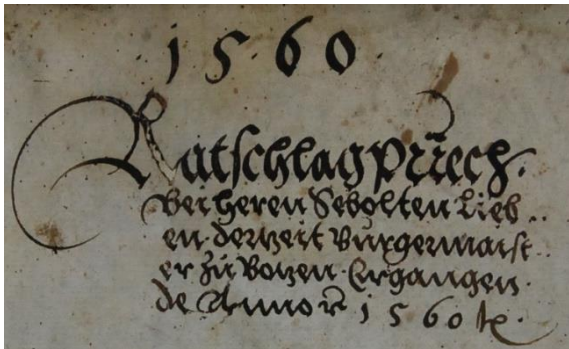 1560
Ratschlagpuech.
Bei heren Sebolten Lieb..
en derzeit Burgermaist..
er zu Bozen Ergangen.
de Anno ꝛc 1560 ꝛc.